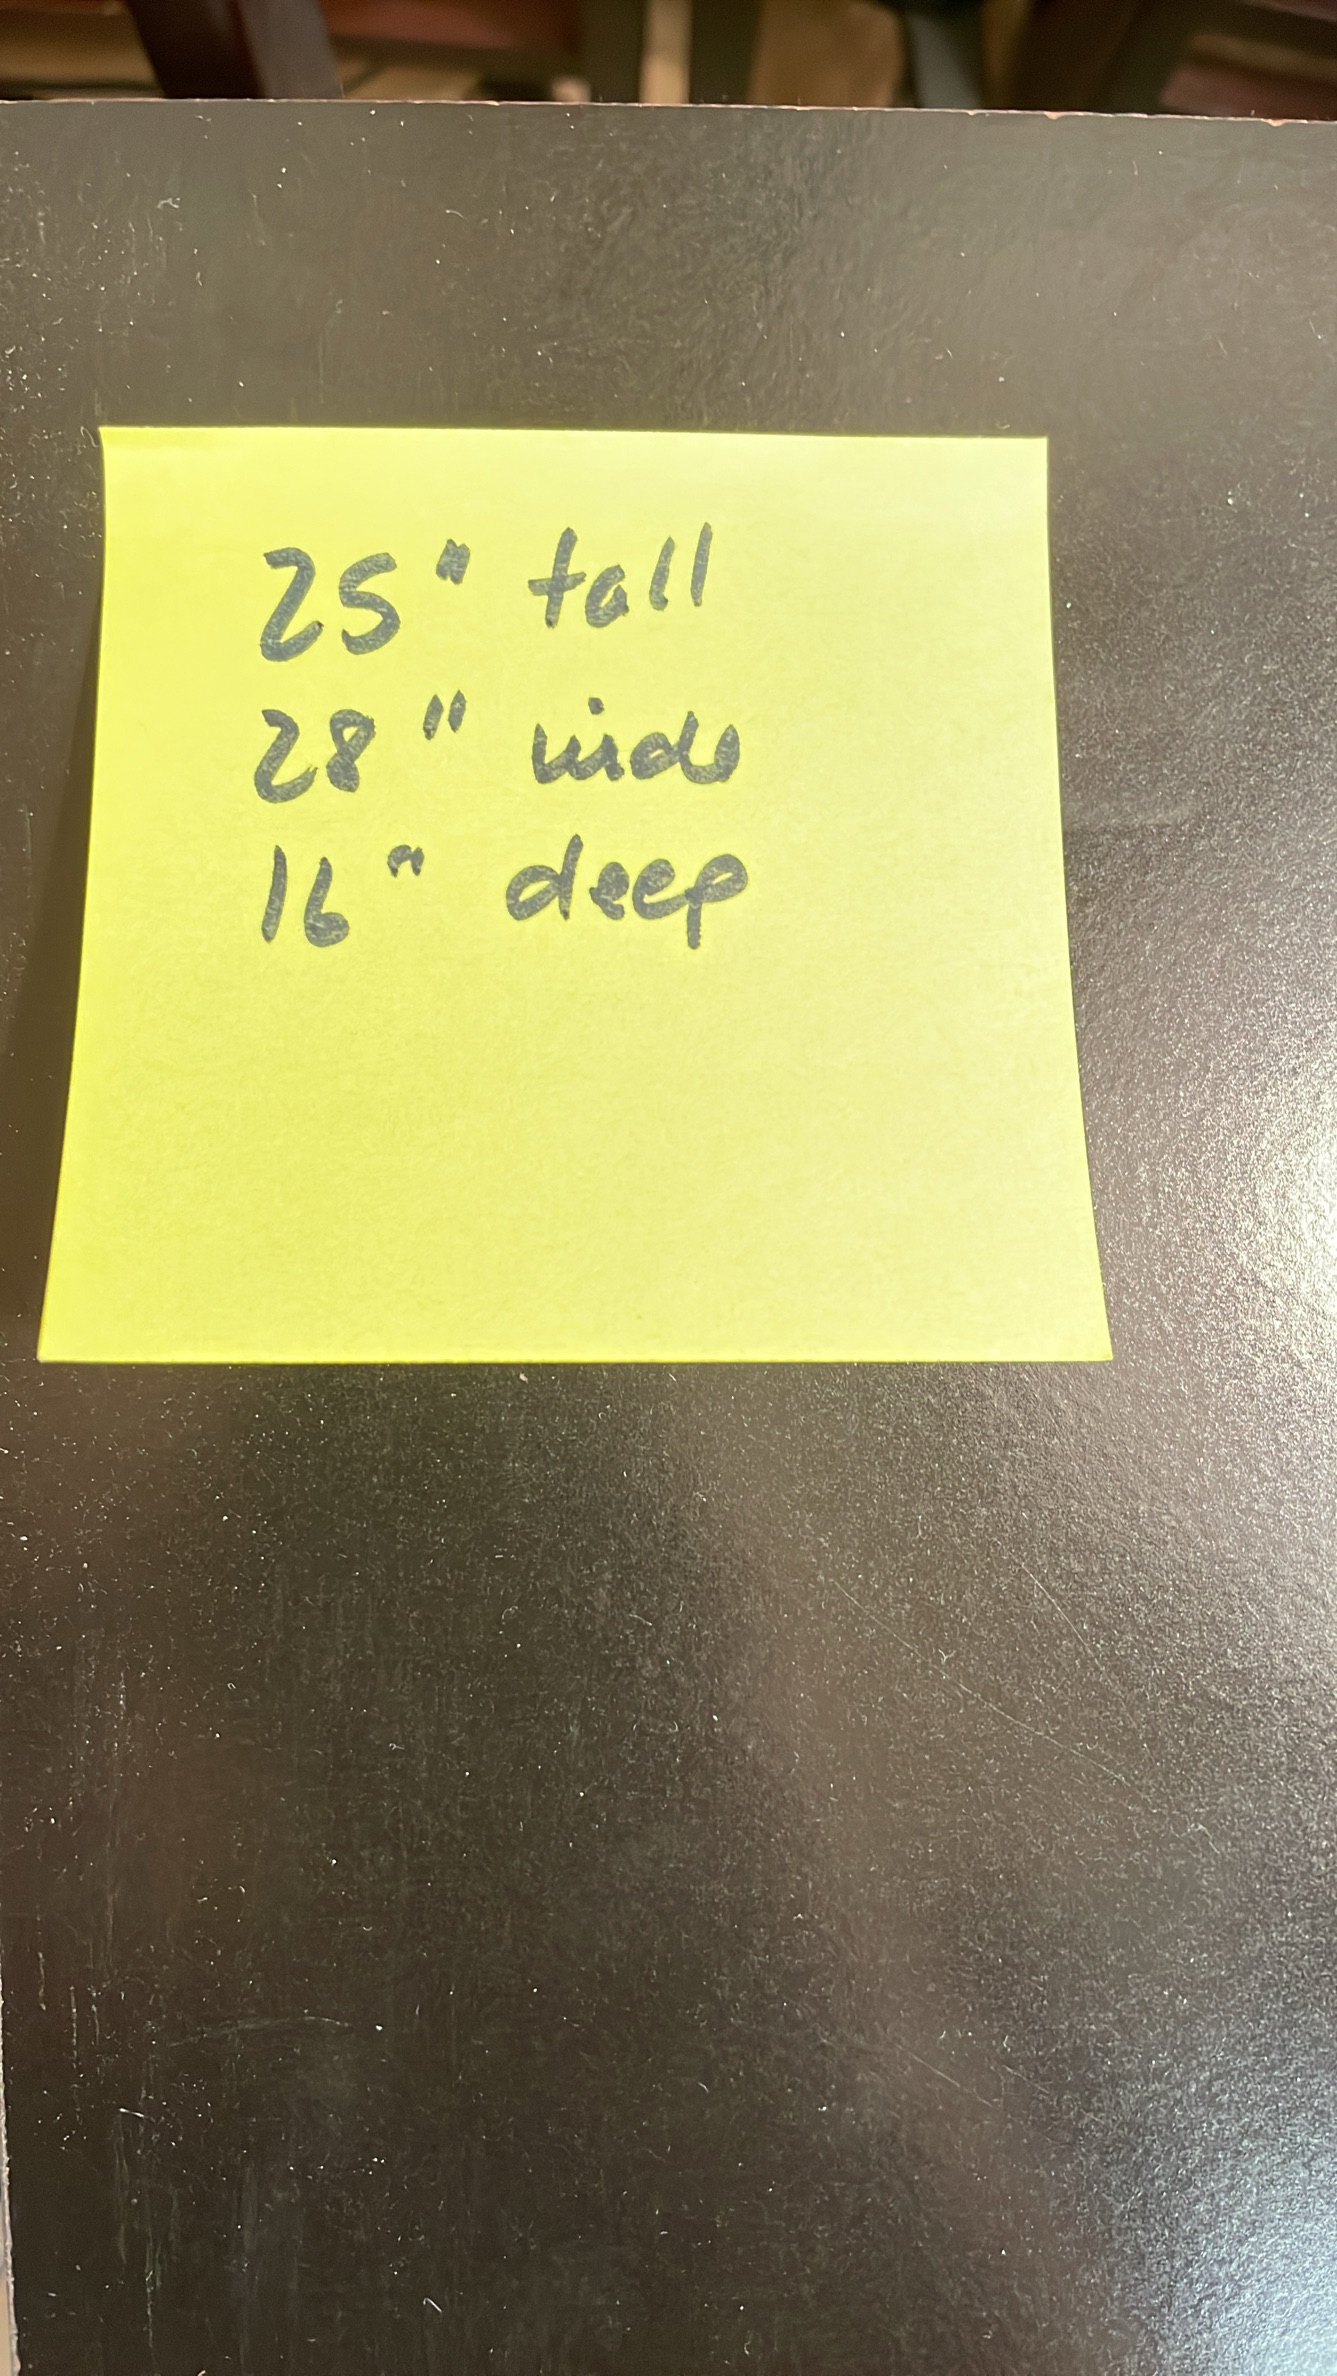 25" tall
28" wide
16" deep